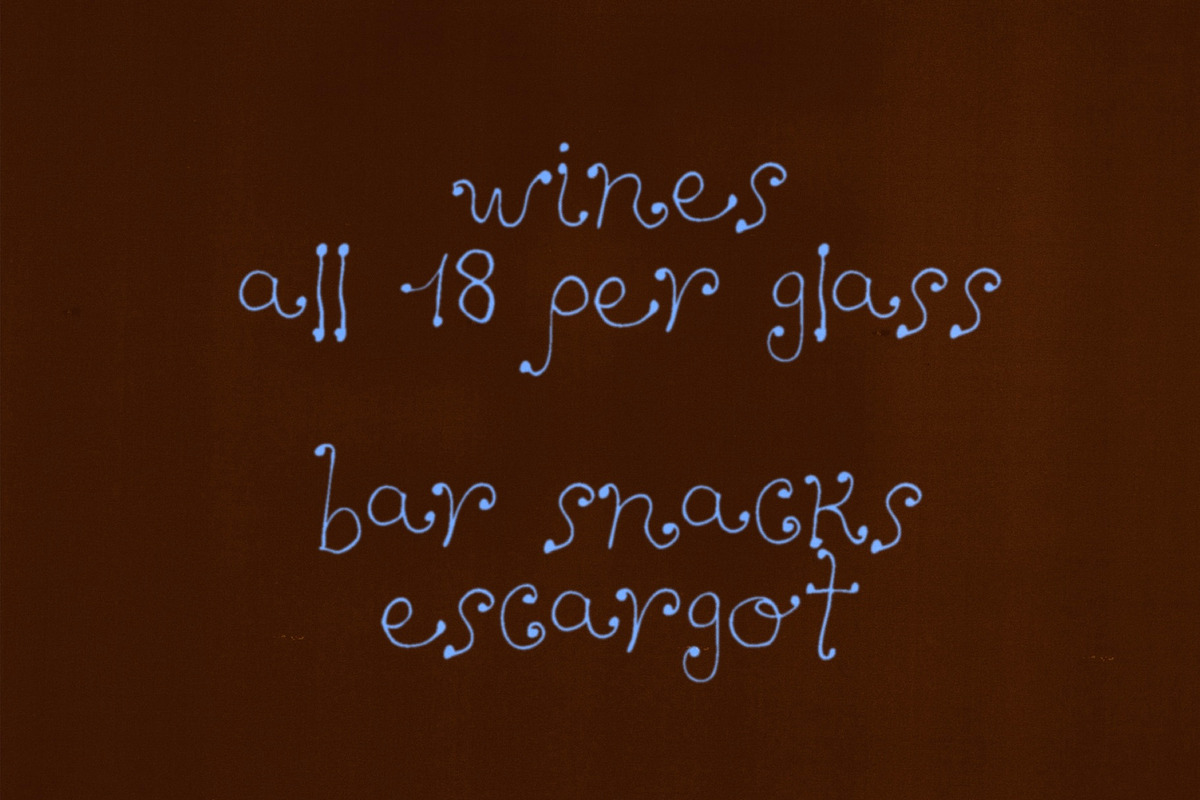 wines
all 18 per glass
bar snacks
escargot